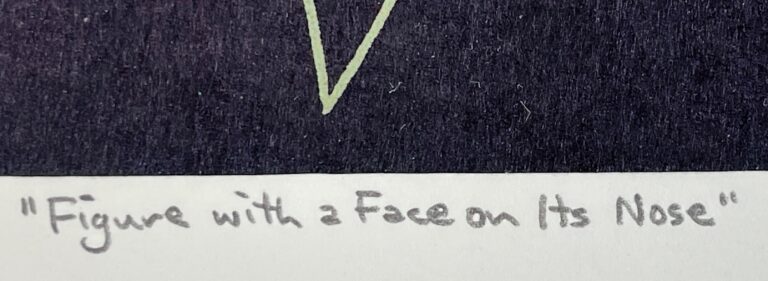 "Figure with a Face on Its Nose"